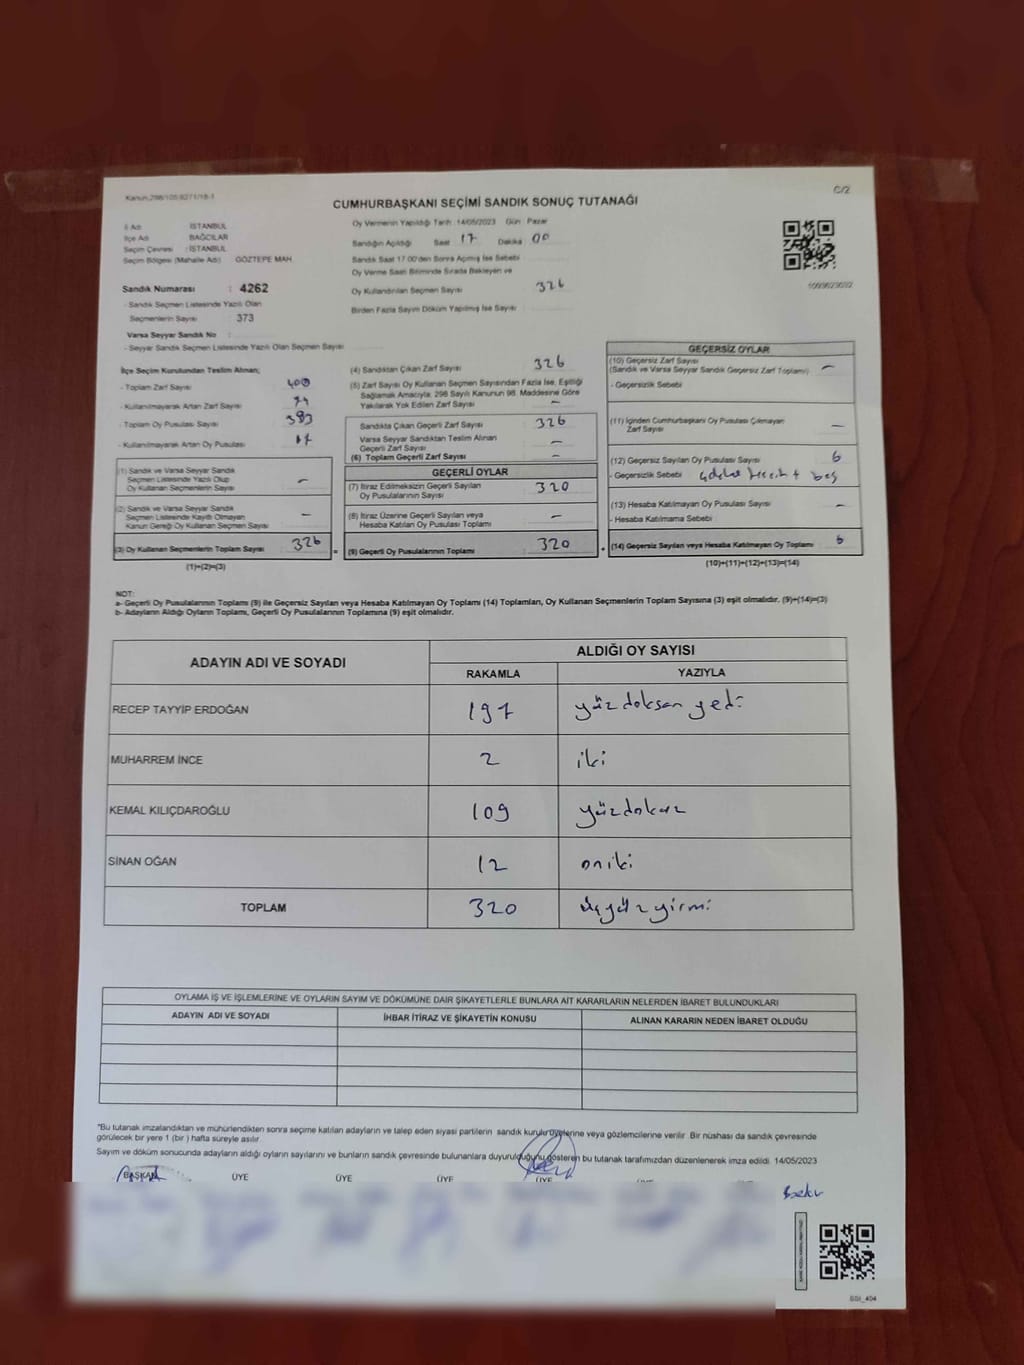 Kanun:298/105/6271/18-1
C/2
CUMHURBAŞKANI SEÇİMİ SANDIK SONUÇ TUTANAĞI
İl Adı : İSTANBUL
İlçe Adı : BAĞCILAR
Seçim Çevresi : İSTANBUL
Seçim Bölgesi (Mahalle Adı) : GÖZTEPE MAH
Sandık Numarası : 4262
- Sandık Seçmen Listesinde Yazılı Olan
Seçmenlerin Sayısı : 373
Varsa Seyyar Sandık No :
- Seyyar Sandık Seçmen Listesinde Yazılı Olan Seçmen Sayısı
Oy Vermenin Yapıldığı Tarih :14/05/2023 Gün : Pazar
Sandığın Açıldığı Saat 17 Dakika 00
Sandık Saat 17.00'den Sonra Açılmış İse Sebebi
Oy Verme Saati Bitiminde Sırada Bekleyen ve
Oy Kullandırılan Seçmen Sayısı 326
Birden Fazla Sayım Döküm Yapılmış İse Sayısı
İlçe Seçim Kurulundan Teslim Alınan;
- Toplam Zarf Sayısı 400
- Kullanılmayarak Artan Zarf Sayısı 74
- Toplam Oy Pusulası Sayısı 383
- Kullanılmayarak Artan Oy Pusulası
(1) Sandık ve Varsa Seyyar Sandık
Seçmen Listesinde Yazılı Olup
Oy Kullanan Seçmenlerin Sayısı -
(2) Sandık ve Varsa Seyyar Sandık
Seçmen Listesinde Kayıtlı Olmayan
Kanun Gereği Oy Kullanan Seçmen Sayısı -
(3) Oy Kullanan Seçmenlerin Toplam Sayısı 326
(1)+(2)=(3)
(4) Sandıktan Çıkan Zarf Sayısı 326
(5) Zarf Sayısı Oy Kullanan Seçmen Sayısından Fazla İse, Eşitliği
Sağlamak Amacıyla; 298 Sayılı Kanunun 98. Maddesine Göre
Yakılarak Yok Edilen Zarf Sayısı -
Sandıkta Çıkan Geçerli Zarf Sayısı 326
Varsa Seyyar Sandıktan Teslim Alınan
Geçerli Zarf Sayısı -
(6) Toplam Geçerli Zarf Sayısı -
GEÇERLİ OYLAR
(7) İtiraz Edilmeksizin Geçerli Sayılan
Oy Pusulalarının Sayısı 320
(8) İtiraz Üzerine Geçerli Sayılan veya
Hesaba Katılan Oy Pusulası Toplamı -
= (9) Geçerli Oy Pusulalarının Toplamı 320
GEÇERSİZ OYLAR
(10) Geçersiz Zarf Sayısı
(Sandık ve Varsa Seyyar Sandık Geçersiz Zarf Toplamı) -
- Geçersizlik Sebebi
(11) İçinden Cumhurbaşkanı Oy Pusulası Çıkmayan
Zarf Sayısı -
(12) Geçersiz Sayılan Oy Pusulası Sayısı 6
- Geçersizlik Sebebi + boş
(13) Hesaba Katılmayan Oy Pusulası Sayısı -
- Hesaba Katılmama Sebebi
+ (14) Geçersiz Sayılan veya Hesaba Katılmayan Oy Toplamı 6
(10)+(11)+(12)+(13)=(14)
NOT:
a- Geçerli Oy Pusulalarının Toplamı (9) ile Geçersiz Sayılan veya Hesaba Katılmayan Oy Toplamı (14) Toplamları, Oy Kullanan Seçmenlerin Toplam Sayısına (3) eşit olmalıdır. (9)+(14)=(3)
b- Adayların Aldığı Oyların Toplamı, Geçerli Oy Pusulalarının Toplamına (9) eşit olmalıdır.
ADAYIN ADI VE SOYADI ALDIĞI OY SAYISI
RAKAMLA YAZIYLA
RECEP TAYYİP ERDOĞAN 197 yüzdoksan yedi
MUHARREM İNCE 2 iki
KEMAL KILIÇDAROĞLU 109 yüzdokuz
SİNAN OĞAN 12 oniki
TOPLAM 320 üçyüzyirmi
OYLAMA İŞ VE İŞLEMLERİNE VE OYLARIN SAYIM VE DÖKÜMÜNE DAİR ŞİKAYETLERLE BUNLARA AİT KARARLARIN NELERDEN İBARET BULUNDUKLARI
ADAYIN ADI VE SOYADI İHBAR İTİRAZ VE ŞİKAYETİN KONUSU ALINAN KARARIN NEDEN İBARET OLDUĞU
*Bu tutanak imzalandıktan ve mühürlendikten sonra seçime katılan adayların ve talep eden siyasi partilerin sandık kurulu üyelerine veya gözlemcilerine verilir. Bir nüshası da sandık çevresinde
görülecek bir yere 1 (bir) hafta süreyle asılır.
Sayım ve döküm sonucunda adayların aldığı oyların sayılarını ve bunların sandık çevresinde bulunanlara duyurulduğunu gösteren bu tutanak tarafımızdan düzenlenerek imza edildi. 14/05/2023
BAŞKAN ÜYE ÜYE ÜYE ÜYE ÜYE ÜYE
SSI_404